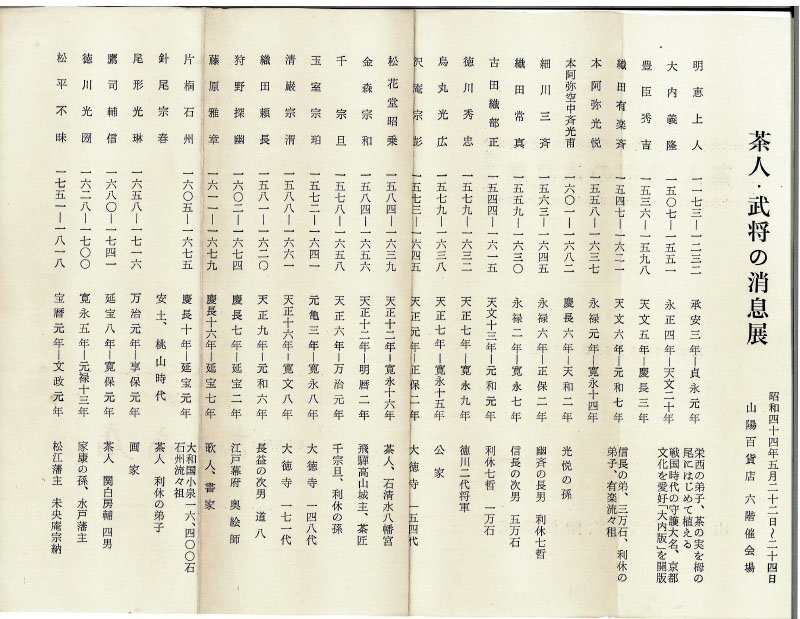 茶人・武将の消息展
昭和四十四年五月二十二日～二十四日
山陽百貨店 六階催会場
明恵上人 一一七三—一二三二 承安三年—貞永元年 栄西の弟子、茶の実を栂の
尾にはじめて植える
大内義隆 一五〇七—一五五一 永正四年—天文二十年 戦国時代の守護大名、京都
文化を愛好「大内版」を開版
豊臣秀吉 一五三六—一五九八 天文五年—慶長三年
織田有楽斉 一五四七—一六二一 天文六年—元和七年 信長の弟、三万石、利休の
弟子、有楽流々祖
本阿弥光悦 一五五八—一六三七 永禄元年—寛永十四年
本阿弥空中斉光甫 一六〇一—一六八二 慶長六年—天和二年 光悦の孫
細川三斉 一五六三—一六四五 永禄六年—正保二年 幽斉の長男 利休七哲
織田常真 一五五九—一六三〇 永禄二年—寛永七年 信長の次男 五万石
古田織部正 一五四四—一六一五 天文十三年—元和元年 利休七哲 一万石
徳川秀忠 一五七九—一六三二 天正七年—寛永九年 徳川二代将軍
烏丸光広 一五七九—一六三八 天正七年—寛永十五年 公家
沢庵宗彭 一五七三—一六四五 天正元年—正保二年 大徳寺 一五四代
松花堂昭乗 一五八四—一六三九 天正十二年—寛永十六年 茶人、石清水八幡宮
金森宗和 一五八四—一六五六 天正十二年—明暦二年 飛騨高山城主、茶匠
千宗旦 一五七八—一六五八 天正六年—万治元年 千宗旦、利休の孫
玉室宗珀 一五七二—一六四一 元亀三年—寛永八年 大徳寺 一四八代
清厳宗渭 一五八八—一六六一 天正十六年—寛文八年 大徳寺 一七一代
織田頼長 一五八一—一六二〇 天正九年—元和六年 長益の次男 道八
狩野探幽 一六〇二—一六七四 慶長七年—延宝二年 江戸幕府 奥絵師
藤原雅章 一六一一—一六七九 慶長十六年—延宝七年 歌人、書家
片桐石州 一六〇五—一六七五 慶長十年—延宝元年 大和国小泉一六、四〇〇石
石州流々祖
針尾宗春 安土、桃山時代 茶人 利休の弟子
尾形光琳 一六五八—一七一六 万治元年—享保元年 画家
鷹司輔信 一六八〇—一七四一 延宝八年—寛保元年 茶人 関白房輔 四男
徳川光圀 一六二八—一七〇〇 寛永五年—元禄十三年 家康の孫、水戸藩主
松平不昧 一七五一—一八一八 宝暦元年—文政元年 松江藩主 未央庵宗納